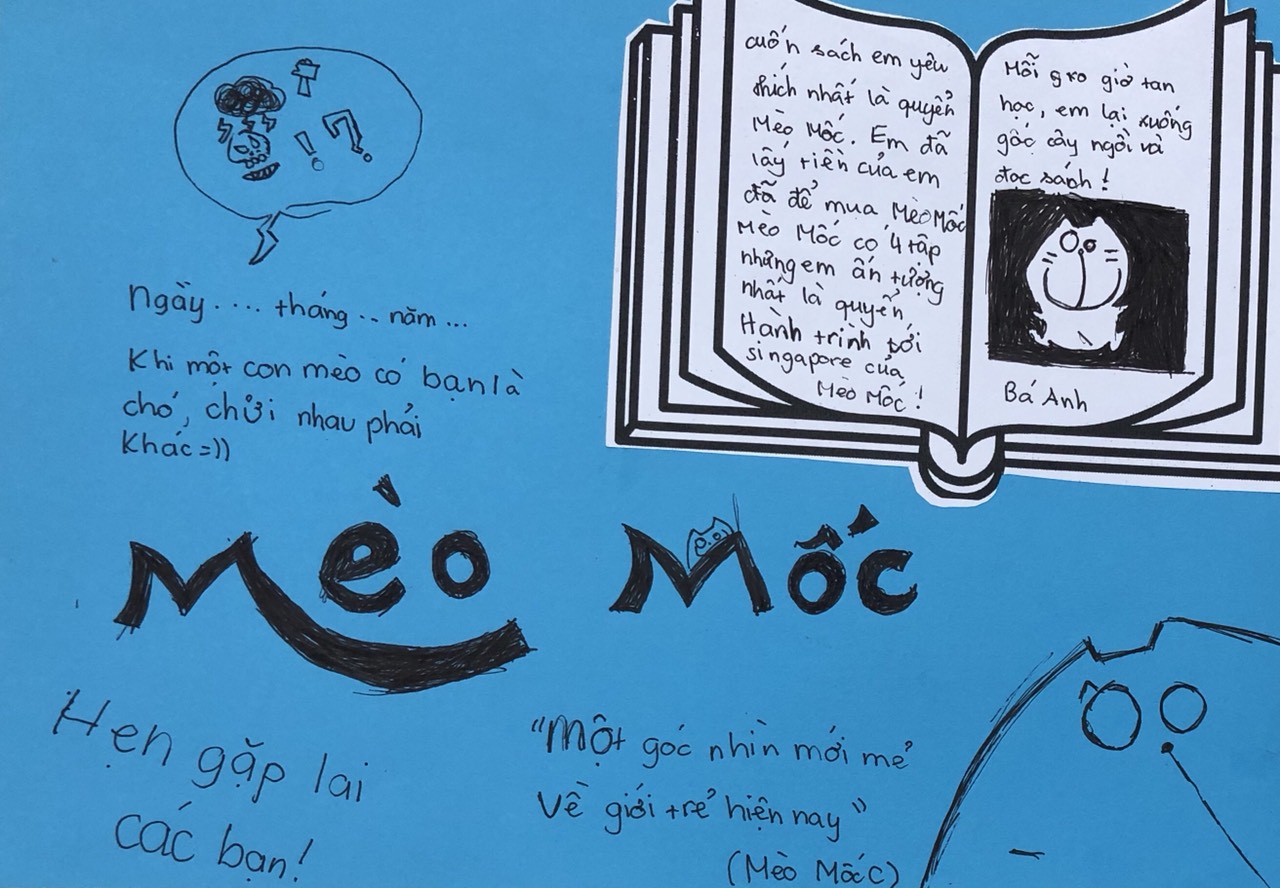 cuốn sách em yêu
thích nhất là quyển
Mèo Mốc. Em đã
lấy tiền của em
đã để mua Mèo Mốc
Mèo Mốc có 4 tập
những em ấn tượng
nhất là quyển
Hành trình tới
singapore của
Mèo Mốc!
Mỗi gro giờ tan
học, em lại xuống
gốc cây ngồi và
đọc sách!
Bá Anh
!?
Ngày .... tháng .. năm ...
Khi một con mèo có bạn là
chó, chửi nhau phải
Khác =))
Mèo Mốc
Hẹn gặp lại
các bạn!
"Một góc nhìn mới mẻ
Về giới trẻ hiện nay"
(Mèo Mốc)